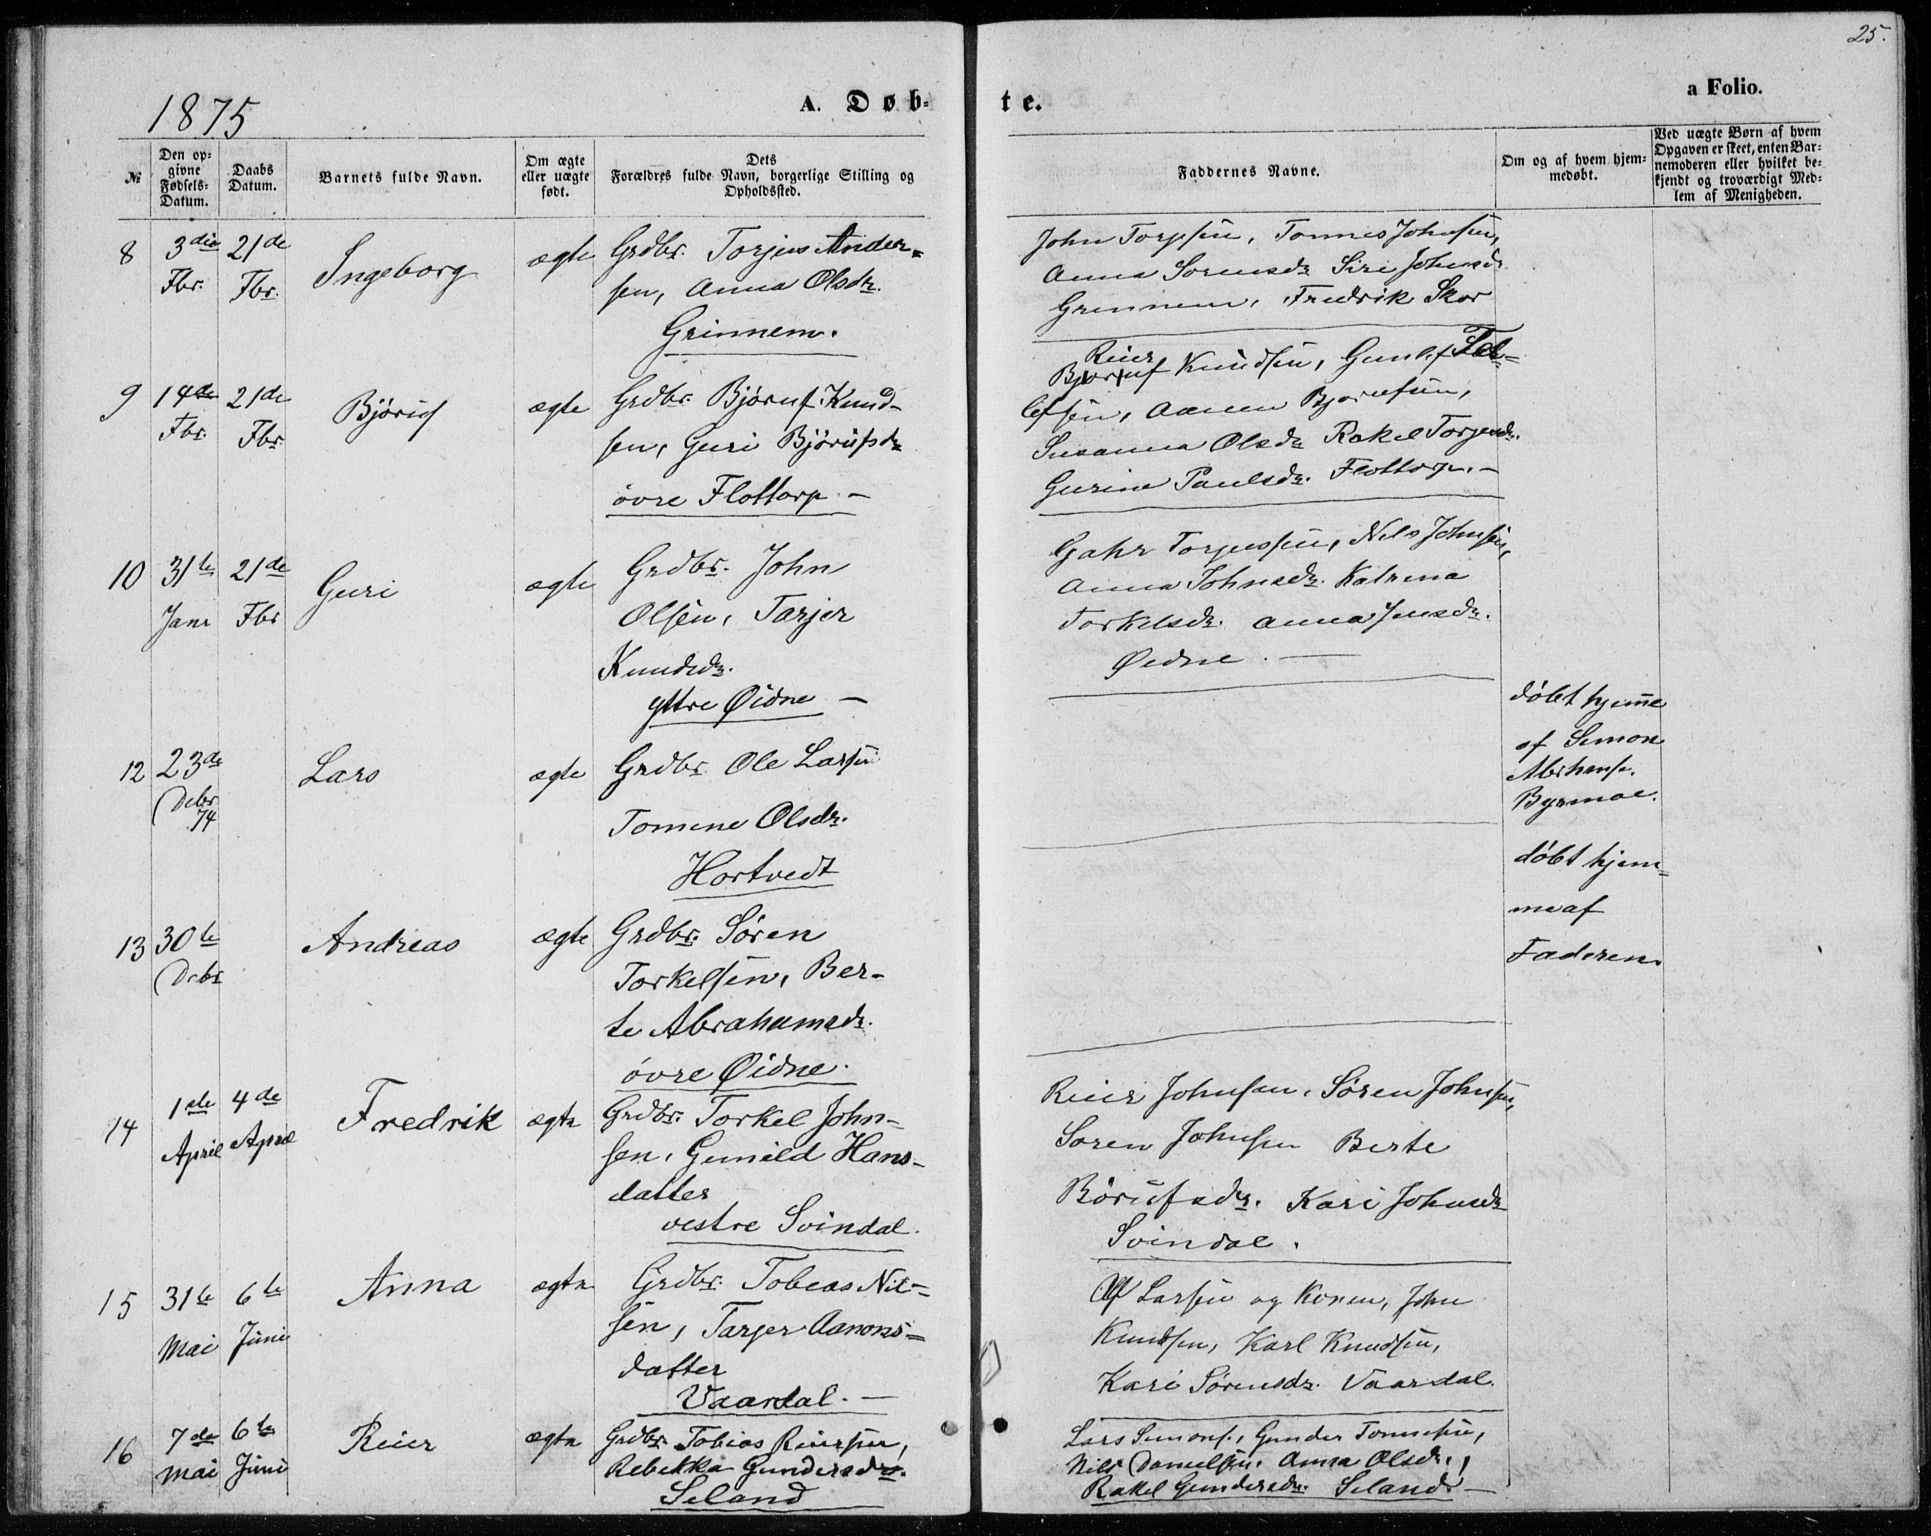 25.
1875
A. Døb-
te.
a Folio.
№
Den op-
givne
Fødsels-
Datum.
Daabs
Datum.
Barnets fulde Navn.
Om ægte
eller uægte
født.
Dets
Forældres fulde Navn, borgerlige Stilling og
Opholdssted.
Faddernes Navne.
Om og af hvem hjem-
medøbt.
Ved uægte Børn af hvem
Opgaven er skeet, enten Bar-
nemoderen eller hvilket be-
kjendt og troværdigt Med-
lem af Menigheden.
8
3die
Fbr.
21de
Fbr.
Ingeborg
ægte
Grdbr. Torjus Ander-
sen, Anna Olsdr.
Grinnem.
John Torjsen, Tønnes Johnsen,
Anna Sorensdr. Siri Johnsdr
Grennem, Fredrik Skor
9
14de
Fbr.
21de
Fbr.
Bjôruf
ægte
Grdbr. Bjôruf Knud-
sen, Guri Bjôrufsdr
ôvre Flottorp —
Reier
Knudsen, Gunluf Tel-
lefsen, Aanen Bjorufsen,
Susanna Olsdr Rakel Torjusdr.
Gurine Paulsdr. Flottorp. —
10
31te
Janr
21de
Fbr
Guri
ægte
Grdbr. John
Olsen, Tarjer
Knudsdr.
yttre Øidne —
Gahr Torjussen, Nils Johnsen,
Anna Johnsdr. Katrina
Torkelsdr. Anna Jensdr.
Øidne. —
12
23de
Debr
74
Lars
ægte
Grdbr. Ole Larsen
Tomine Olsdr.
Hortvedt
dôbt hjeme
af Simon
Abrhamse.
Byrmoe.
13
30te
Debr
Andreas
ægte
Grdbr. Sôren
Torkelsen, Ber-
te Abrahamsdr.
ôvre Øidne.
dôbt hjem-
me af
Faderen.
14
1ste
April
4de
April
Fredrik
ægte
Grdbr. Torkel John-
sen, Gunild Hans-
datter
vestre Svindal.
Reier Johnsen, Sôren Johnsen,
Soren Johnsen Berte
Bôrufsdr. Kari Johnsdr
Svindal.
15
31te
Mai
6te
Juni
Anna
ægte
Grdbr. Tobias Nil-
sen, Tarjer Aanons-
datter
Vaardal. —
Ulf Larsen og Konen, John
Knudsen, Karl Knudsen,
Kari Sôrensdr. Vaardal.
16
7de
Mai
6te
Juni
Reier
ægte
Grdbr. Tobias Reiersen,
Rebekka Gundersdr.
Seland
Lars Simons., Gunder Tønnesen,
Nils Danielsen, Anna Olsdr.,
Rakel Gundersdr. Seland —